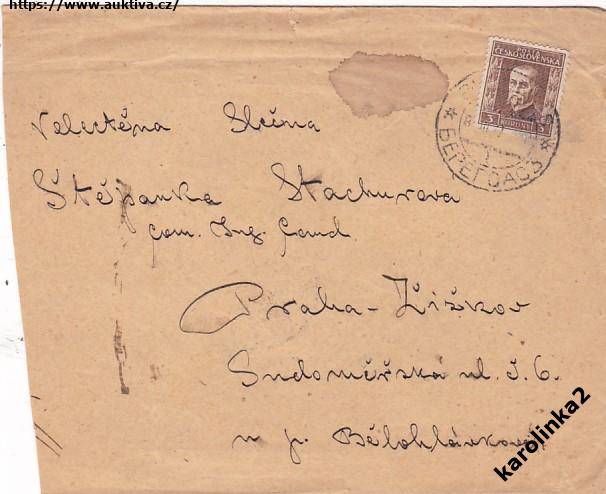 https://www.auktiva.cz/
POŠTA
ČESKOSLOVENSKA
3 KORUNY 3
* БЕРЕГСАСЗ *
Velectěna Slečna
Štěpanka Stachurova
com. Ing. Cand.
Praha-Žižkov
Sudoměřská ul. č. 6.
u p. Bělohlávkové
karolinka2